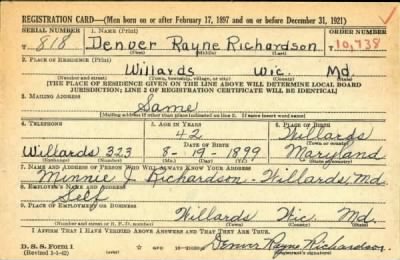 REGISTRATION CARD—(Men born on or after February 17, 1897 and on or before December 31, 1921)
SERIAL NUMBER 1. NAME (Print) ORDER NUMBER
T 818 Denver Rayne Richardson T10,738
(First) (Middle) (Last)
2. PLACE OF RESIDENCE (Print)
Willards Wic. Md.
(Number and street) (Town, township, village, or city) (County) (State)
[THE PLACE OF RESIDENCE GIVEN ON THE LINE ABOVE WILL DETERMINE LOCAL BOARD
JURISDICTION; LINE 2 OF REGISTRATION CERTIFICATE WILL BE IDENTICAL]
3. MAILING ADDRESS
Same
[Mailing address if other than place indicated on line 2. If same insert word same]
4. TELEPHONE 5. AGE IN YEARS 6. PLACE OF BIRTH
42 Willards
DATE OF BIRTH (Town or county)
Willards 323 8-19-1899 Maryland
(Exchange) (Number) (Mo.) (Day) (Yr.) (State or country)
7. NAME AND ADDRESS OF PERSON WHO WILL ALWAYS KNOW YOUR ADDRESS
Minnie J Richardson-Willards, Md.
8. EMPLOYER'S NAME AND ADDRESS
Self
9. PLACE OF EMPLOYMENT OR BUSINESS
Willards Wic Md.
(Number and street or R. F. D. number) (Town) (County) (State)
I AFFIRM THAT I HAVE VERIFIED ABOVE ANSWERS AND THAT THEY ARE TRUE.
D. S. S. Form 1
(Revised 1-1-42) Denver Rayne Richardson.
(Registrant's signature)